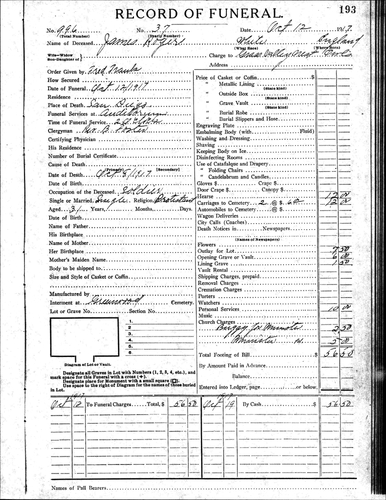 193
RECORD OF FUNERAL
No. 996 No. 37 Date Oct 12 1917
(Total Number) (Yearly Number)
Name of Deceased James Rogers White England
(What Race) (What Country)
Wife—Widow
Son-Daughter of Charge to
Address
Order Given by
How Secured
Date of Funeral Oct. 12/1917
Residence
Place of Death San Diego
Funeral Services at Auditorium
Time of Funeral Service
Clergyman Rev. B.
Certifying Physician
His Residence
Number of Burial Certificate
Cause of Death
Date of Death Oct 8/1917
Date of Birth
Occupation of the Deceased Soldier
Single or Married Single Religion Protestant
Aged 31 Years, Months, Days
Date of Birth
Name of Father
His Birthplace
Name of Mother
Her Birthplace
Mother's Maiden Name
Body to be shipped to
Size and Style of Casket or Coffin
Manufactured by
Interment at Greenwood Cemetery
Lot or Grave No. Section No.
1
2
3
4
5
6
Diagram of Lot or Vault.
Designate all Graves in Lot with Numbers (1, 2, 3, 4, etc.), and mark space for this Funeral with a cross (+).
Designate place for Monument with a small square
Use space to the right of Diagram for names of those buried in Lot.
Price of Casket or Coffin
" Metallic Lining
(State Kind)
" Outside Box
(State Kind)
" Grave Vault
(State Kind)
" Burial Robe
(State Kind)
" Burial Slippers and Hose
Engraving Plate
Embalming Body (with Fluid)
Washing and Dressing
Shaving
Keeping Body on Ice
Disinfecting Rooms
Use of Catafalque and Drapery
" Folding Chairs
" Candelabrum and Candles
Gloves $ Crape $
Door Crape $ Canopy $
Hearse 12 00
Carriages to Cemetery 2 @ $ 6.00 12 00
Automobiles to Cemetery @ $
Wagon Deliveries
City Calls (Coaches)
Death Notices in Newspapers
(Names of Newspapers)
Flowers
Outlay for Lot 7 50
Opening Grave or Vault 6 00
Lining Grave 1 50
Vault Rental
Shipping Charges, prepaid
Removal Charges
Cremation Charges
Porters
Watchers
Personal Services 10 00
Music
Church Charges
Buggy for Minister 2 50
Minister 5 00
Total Footing of Bill $ 56 50
By Amount Paid in Advance
Balance
Entered into Ledger, page or below.
Oct 12 To Funeral Charges Total, $ 56 50 By Cash $ 56 50
Names of Pall Bearers